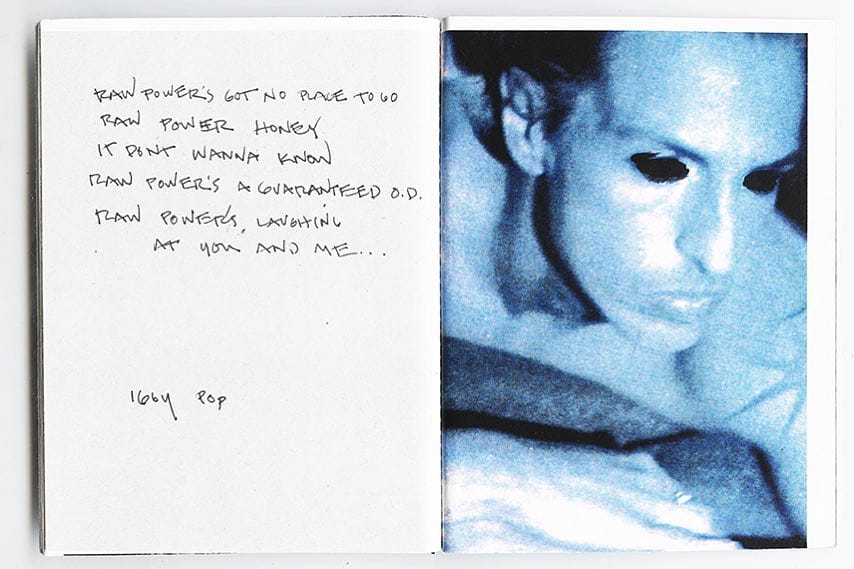 RAW POWER'S GOT NO PLACE TO GO
RAW POWER HONEY
IT DON'T WANNA KNOW
RAW POWER'S A GUARANTEED O.D.
RAW POWER'S, LAUGHING
AT YOU AND ME...
IGGY POP